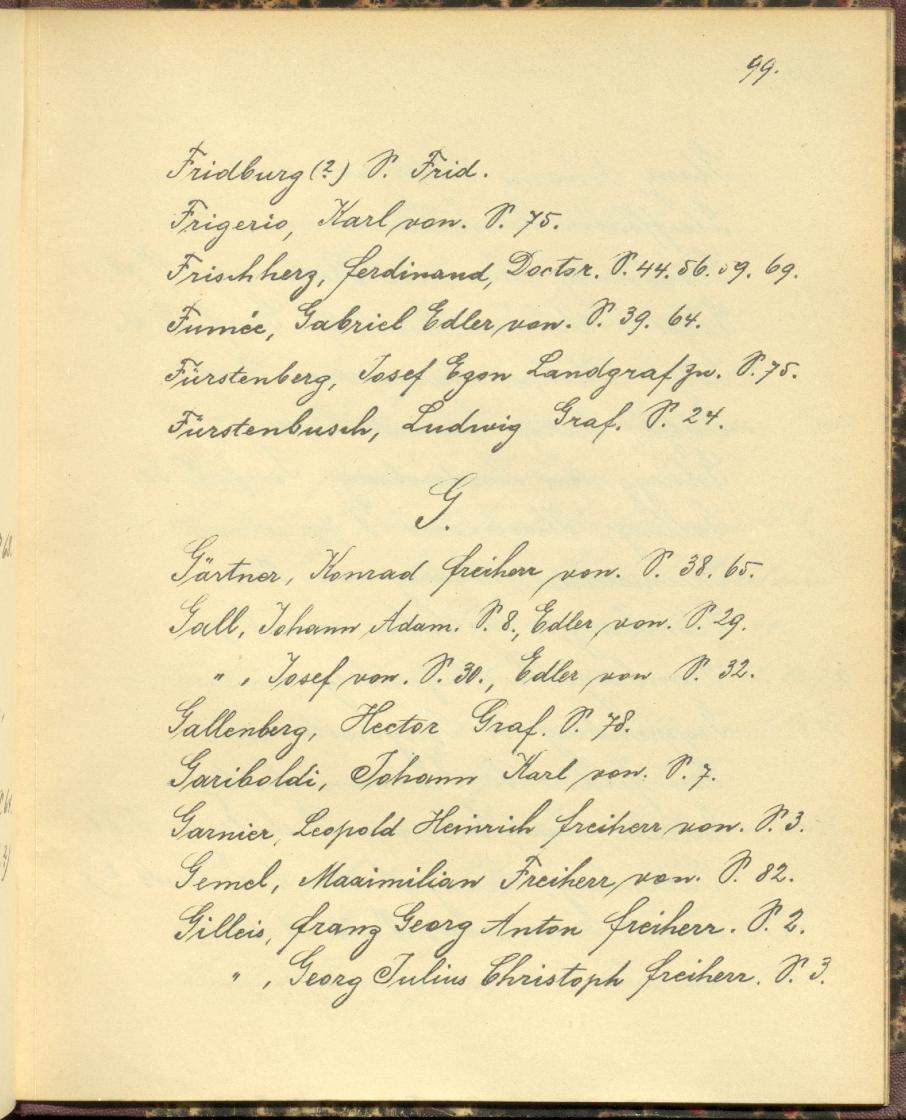 99.
Fridburg (?) S. Frid.
Frigerio, Karl von. S. 75.
Frischherz, Ferdinand, Doctor. S. 44. 56. 59. 69.
Fumée, Gabriel Edler von. S. 39. 64.
Fürstenberg, Josef Egon Landgraf zu. S. 75.
Fürstenbusch, Ludwig Graf. S. 24.
G.
Gärtner, Konrad Freiherr von. S. 38. 65.
Gall, Johann Adam. S. 8., Edler von. S. 29.
" , Josef von. S. 30., Edler von S. 32.
Gallenberg, Hector Graf. S. 78.
Gariboldi, Johann Karl von. S. 7.
Garnier, Leopold Heinrich Freiherr von. S. 3.
Gemel, Maximilian Freiherr von. S. 82.
Gilleis, Franz Georg Anton Freiherr. S. 2.
" , Georg Julius Christoph Freiherr. S. 3.